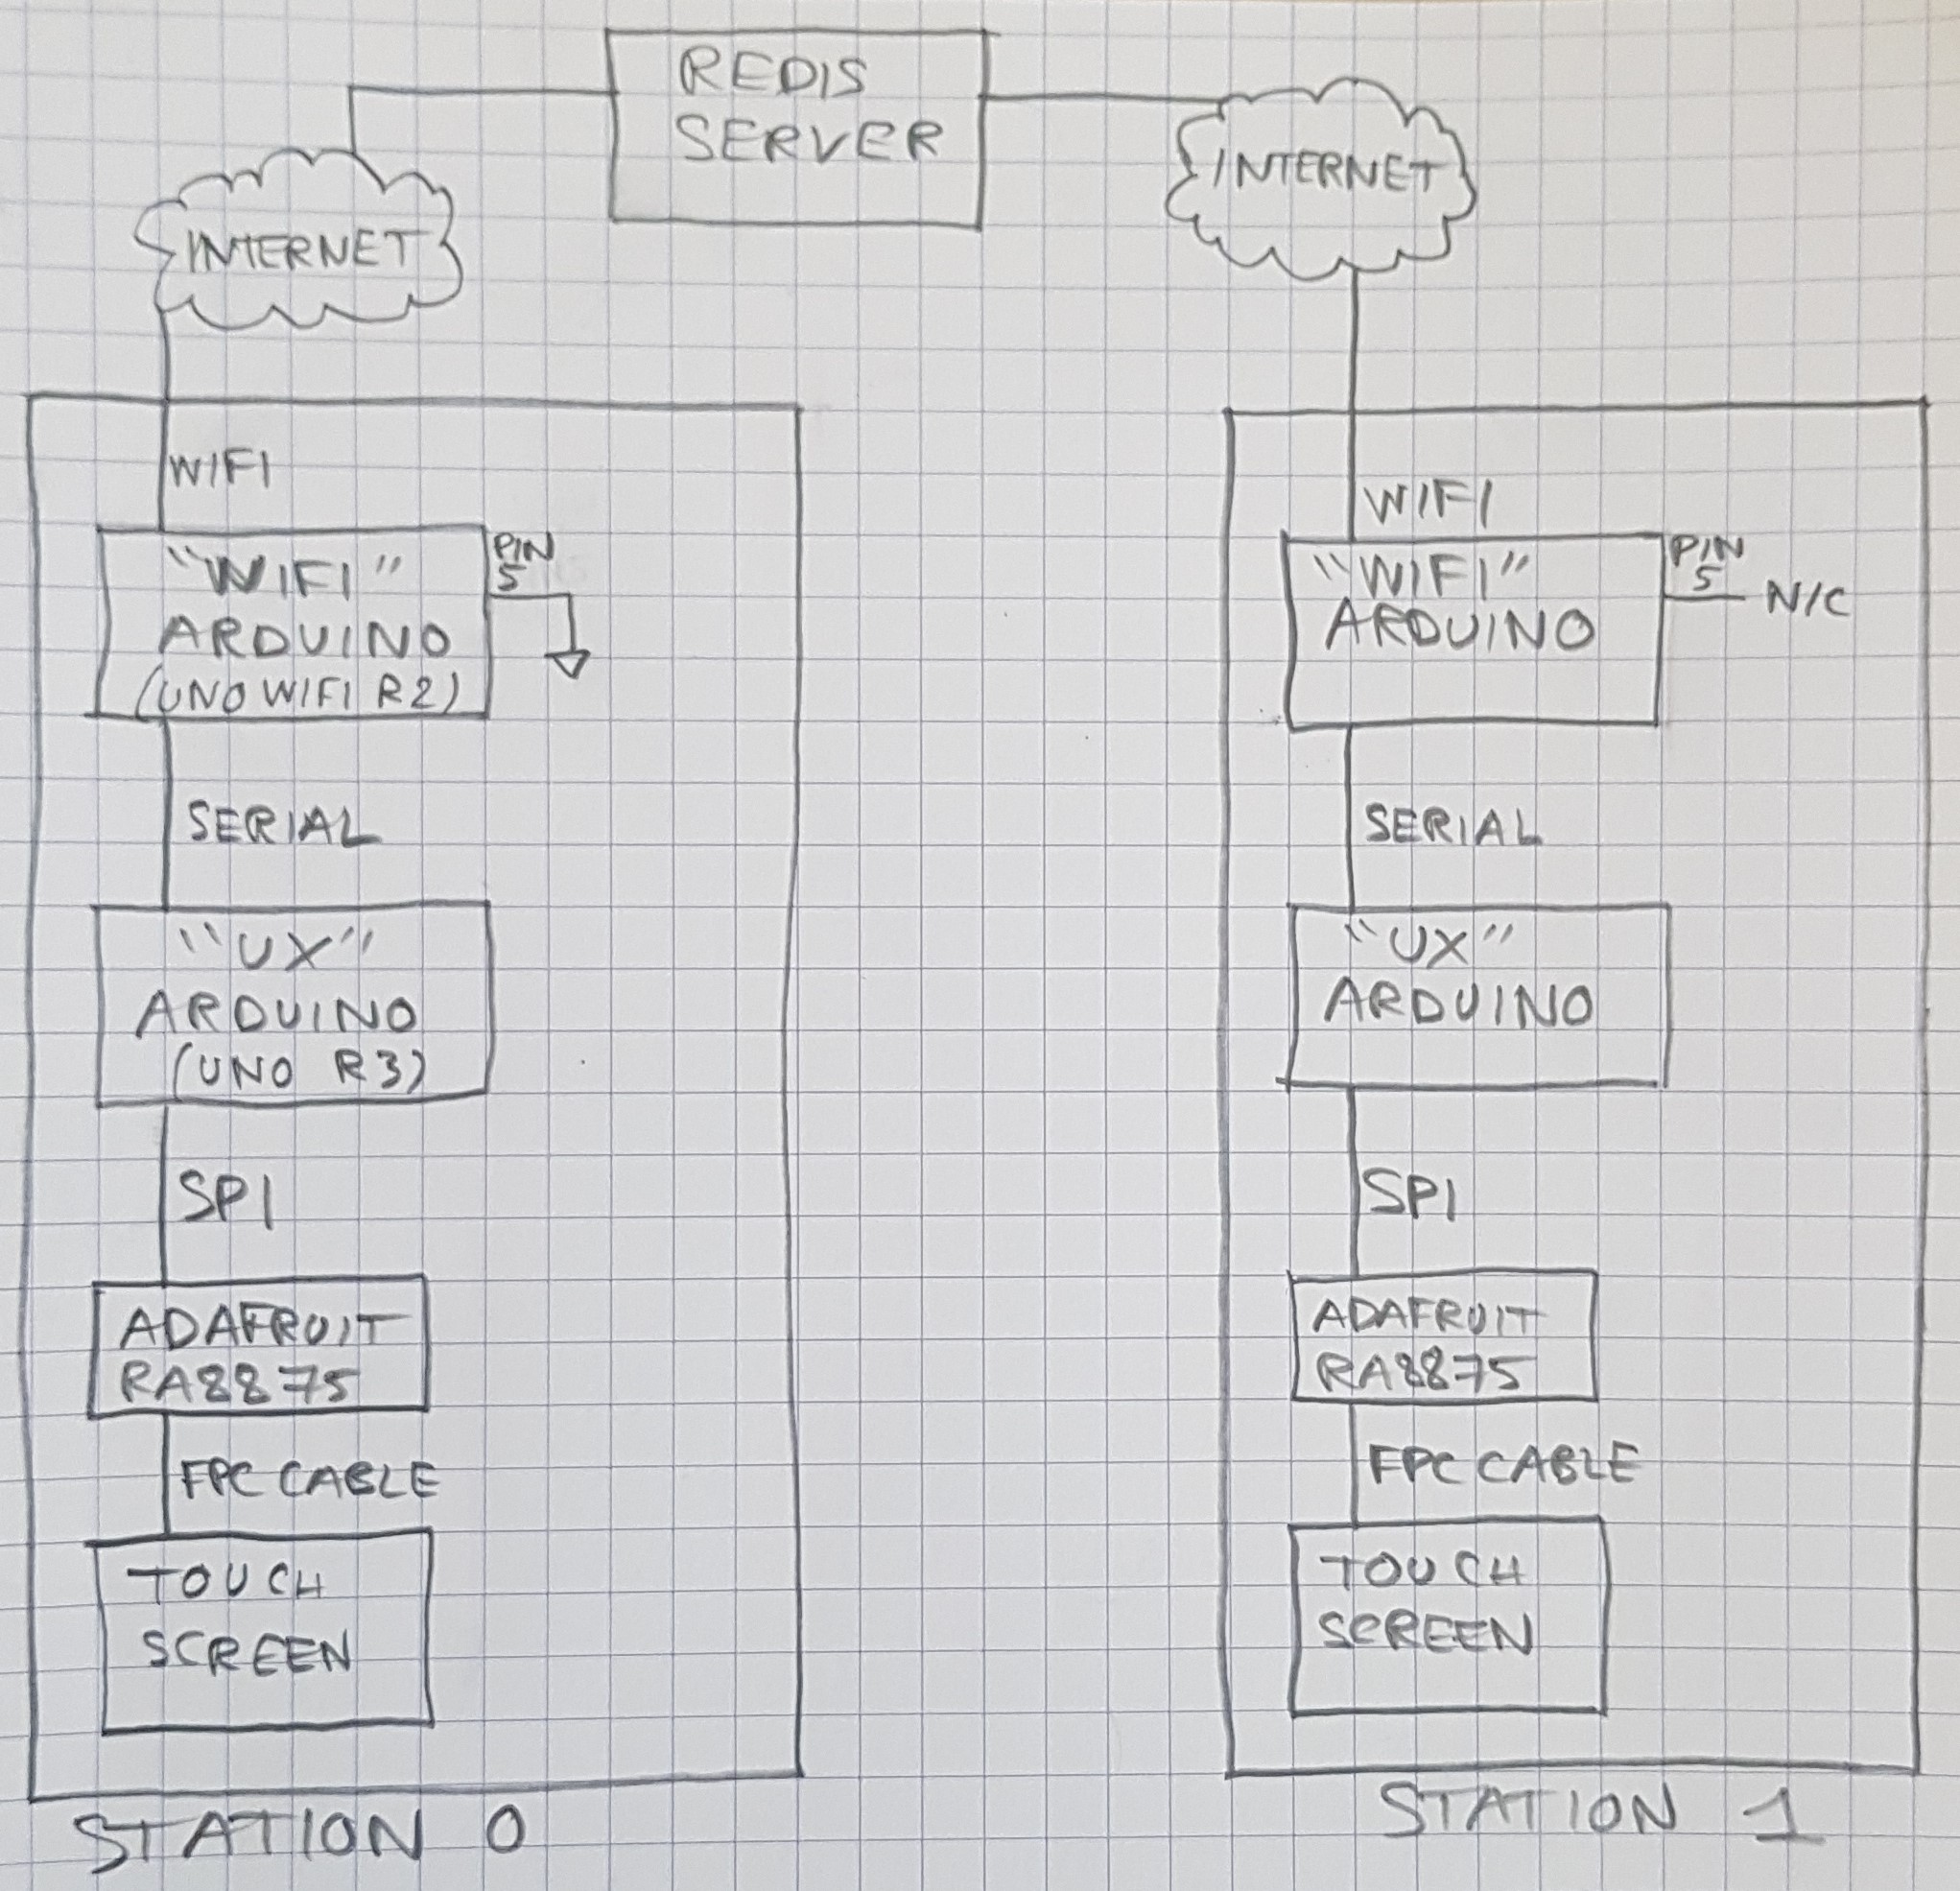 REDIS
SERVER
INTERNET
INTERNET
WIFI
"WIFI"
ARDUINO
(UNO WIFI R2)
PIN
5
SERIAL
"UX"
ARDUINO
(UNO R3)
SPI
ADAFRUIT
RA8875
FPC CABLE
TOUCH
SCREEN
STATION 0
WIFI
"WIFI"
ARDUINO
PIN
5
N/C
SERIAL
"UX"
ARDUINO
SPI
ADAFRUIT
RA8875
FPC CABLE
TOUCH
SCREEN
STATION 1